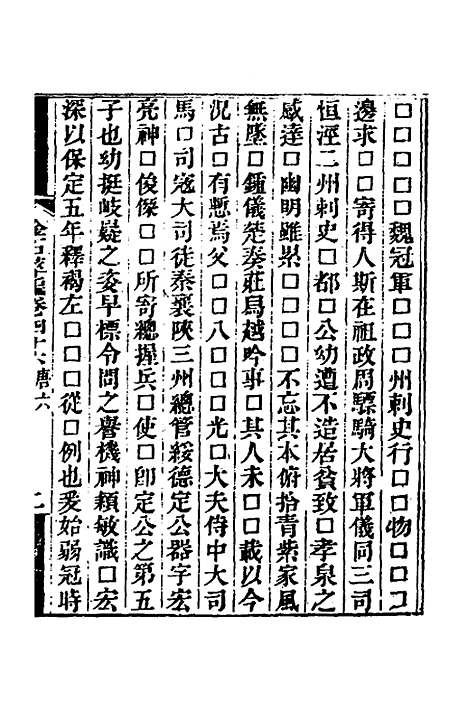 □□□□□魏冠軍□□□州刺史行□□物□□□
邊求□□寄得人斯在祖政周驃騎大將軍儀同三司
恒涇二州刺史□都□公幼遭不造居貧致□孝泉之
感達□幽明雖累□□□不忘其本俯拾青紫家風
無墜□鍾儀楚奏莊舄越吟事□其人未□□載以今
況古□有慙焉父□□八□□□光□大夫侍中大司
馬□司寇大司徒秦襄陝三州總管綏德定公器字宏
亮神□俊傑□□所寄總握兵□使□卽定公之第五
子也幼挺岐嶷之姿早標令問之譽機神穎敏識□宏
深以保定五年釋褐左□□□從□例也爰始弱冠時
金石萃編卷四十六 唐六
二